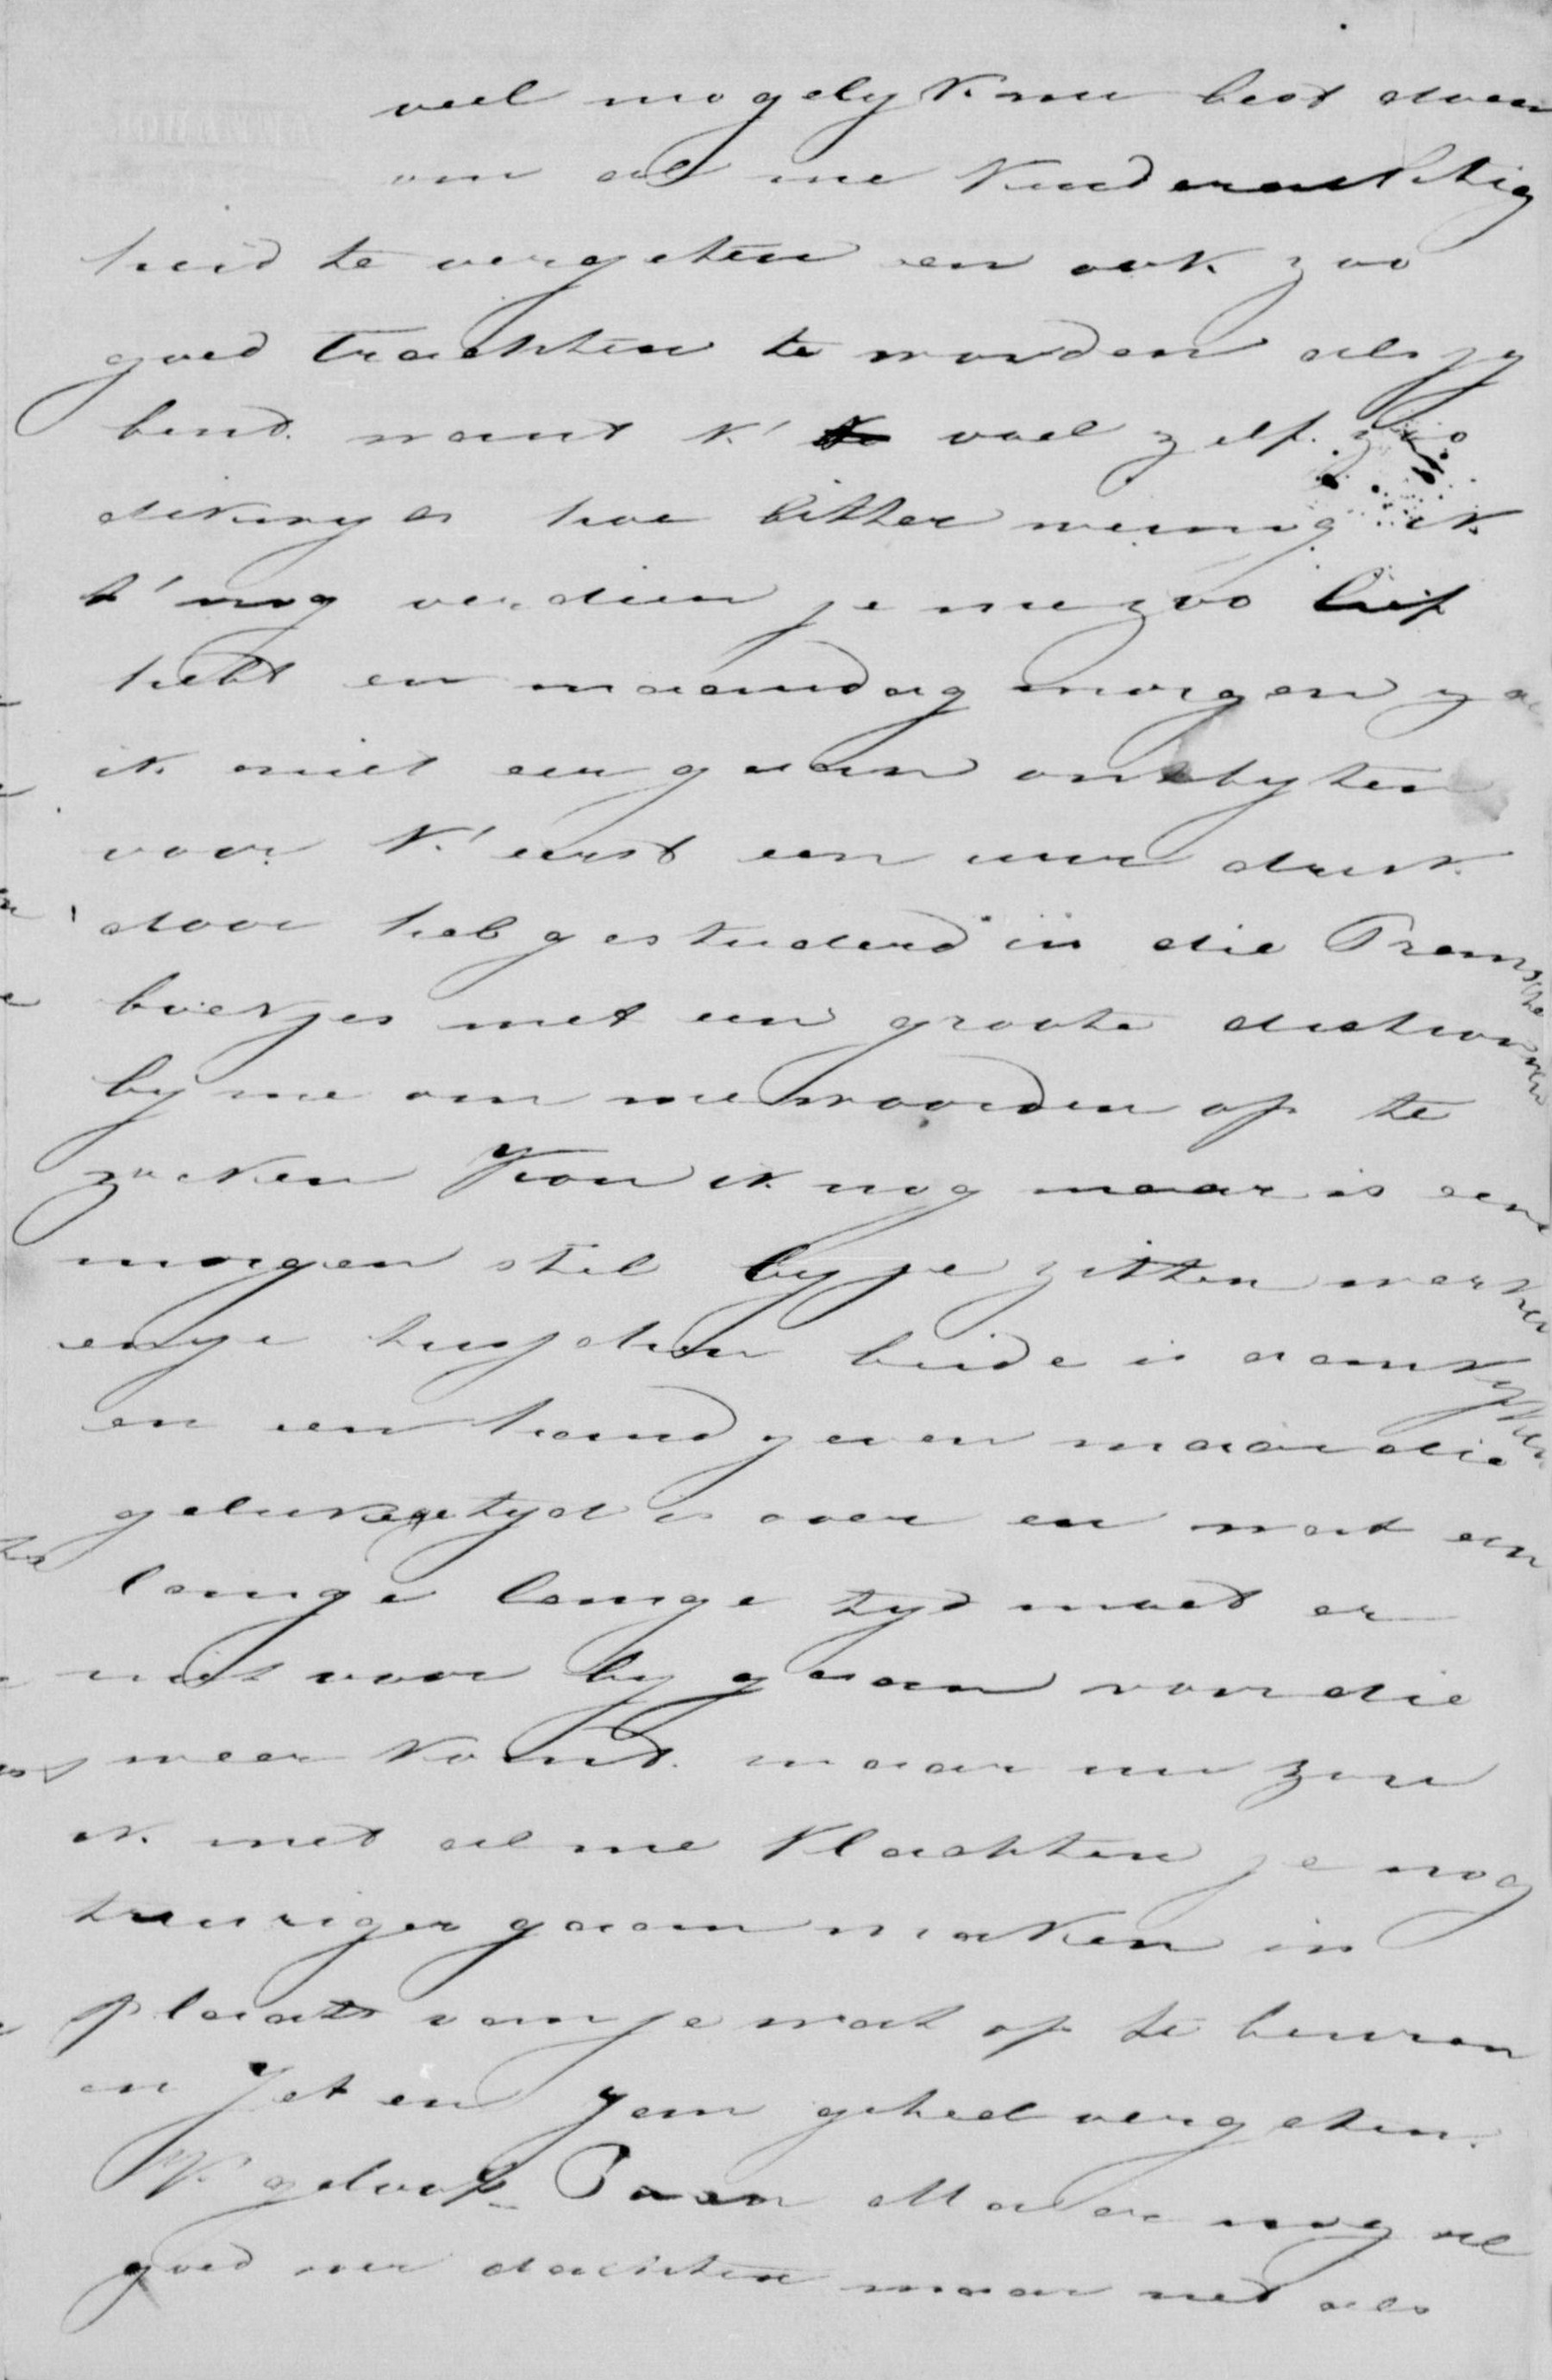 veel mogelyk me best doen
om al me kinderachtig
heid te vergeten en ook zoo
goed trachten te worden als jy
bent. want k' voel zelf zoo
dikwyls hoe bitter weinig ik
t' nog verdien je me zoo lief
hebt en maandag morgen ga
ik niet eer gaan ontbyten
voor k' eerst een uur druk
door heb gestudeerd in die Fransche
boekjes met een groote dictionnaire
by me om me woorden op te
zoeken Kon ik nog maar is een
morgen stil by je zitten werken
en je tusschen beide is aankyken
en een hand geven maar die
gelukkige tyd is over en wat een
lange lange tyd moet er
niet voor by gaan voor die
weer komt. maar nu zou
ik met al me klachten je nog
treuriger gaan maken in
plaats van je wat op te beuren
en Jet en Jan geheel vergeten.
'K geloof Pa en Moeder nog al
goed over dachten maar net als